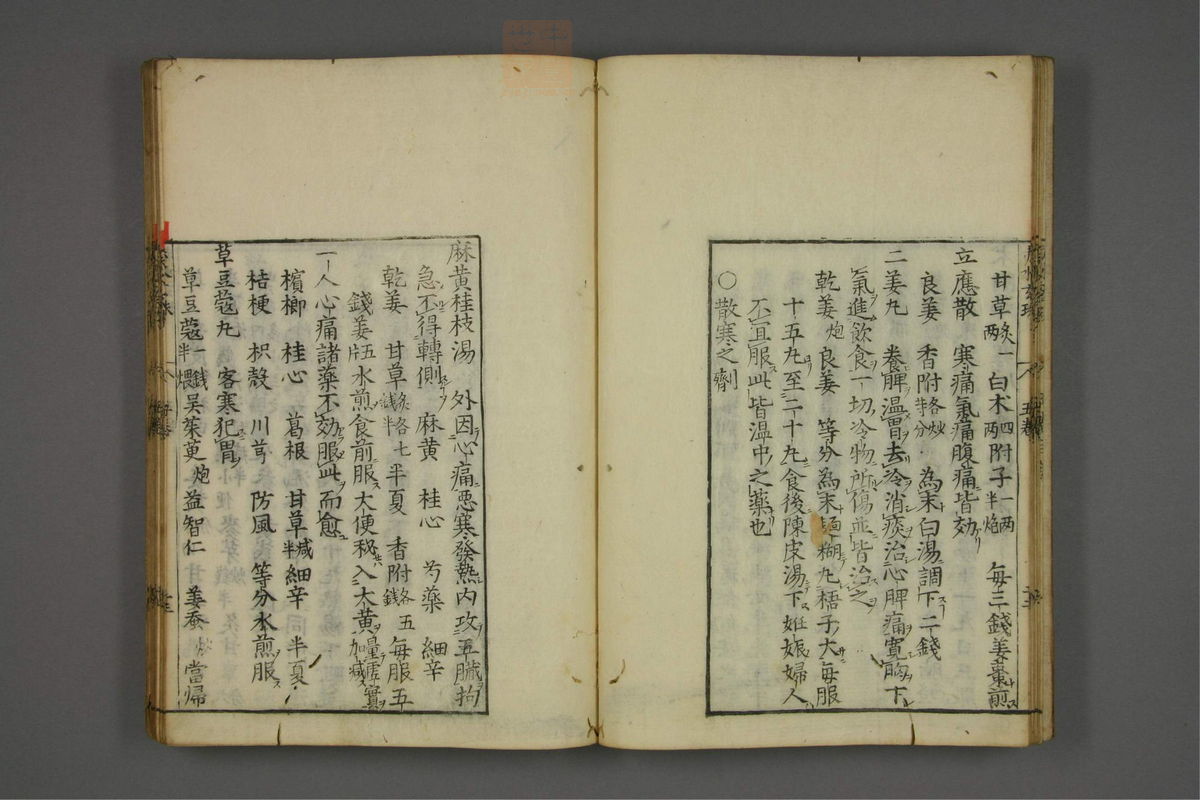 甘草炙一两白术四两附子一两半炮 每三錢姜棗煎
立應散 寒痛氣痛腹痛皆効
良姜 香附各炒等分 為末白湯調下二錢
二姜丸 養脾温胃去冷消痰治心脾痛寛胸下
氣進飲食一切冷物所傷並皆治之
乾姜炮 良姜 等分為末麺糊丸梧子大每服
十五丸至二十丸食後陳皮湯下妊娠婦人
不宜服此皆温中之藥也
〇散寒之劑
麻黄桂枝湯 外因心痛悪寒發熱内攻五臓拘
急不得轉側 麻黄 桂心 芍藥 細辛
乾姜 甘草炙各七錢半 半夏 香附各五錢 每服五
錢姜五片水煎食前服大便秘入大黄量虚實加减
一人心痛諸藥不効服此而愈
檳榔 桂心 葛根 甘草减半細辛 半夏
桔梗 枳殻 川芎 防風 等分水煎服
草豆蔻丸 客寒犯胃
草豆蔻一錢半煨呉茱萸炮益智仁 姜蚕炒當帰